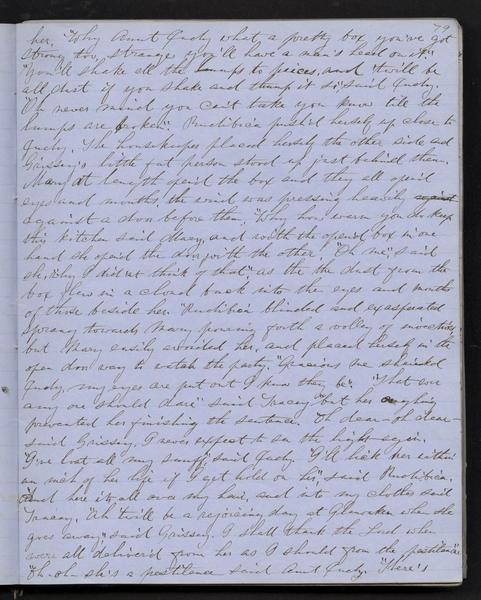 79
her. "Why Aunt Judy what a pretty box you've got
strong too, strange you'll have a man's head on it."
"You'll shake all the lumps to peices, and 'twill be
all dust if you shake and thump it so" said Judy.
"Oh never mind you can't take you know till the
lumps are broken". push'd herself up close to
Judy. The housekeeper placed herself the other side and
Grissey's little fat person stood up just behind them.
Mary at length open'd the box and they all open'd
eyes and mouths, the wind was pressing heavily
against a door before them, "Why how warm you do keep
this kitchen said Mary, and with the open'd box in one
hand she open'd the door with the other. "Oh me", said
she, "why I did n't think of that", as the the dust from the
box flew in a cloud back into the eyes and mouths
of those beside her. blinded and exasperated
sprang towards Mary pouring forth a volley of
but Mary easily avoided her, and placed herself in the
open door way to watch the party. "Gracious me shrieked
Judy, my eyes are put out I know they be". "What ever
any one should dare" said Tracey" but her
prevented her finishing the sentence. "Oh dear-oh dear-
said Grissey, I never expect to see the light again.
"I've lost all my snuff", said Judy "I'll lick her within
an inch of her life if I get hold on her", said
And here it's all over my hair, and into my clothes said
Tracey, "Ah 'twill be a rejoicing day at when she
goes away," said Grissey. I shall thank the Lord when
were all deliver'd from her as I should from the pestilence".
"Oh-oh she's a pestilence said Aunt Judy. "There's